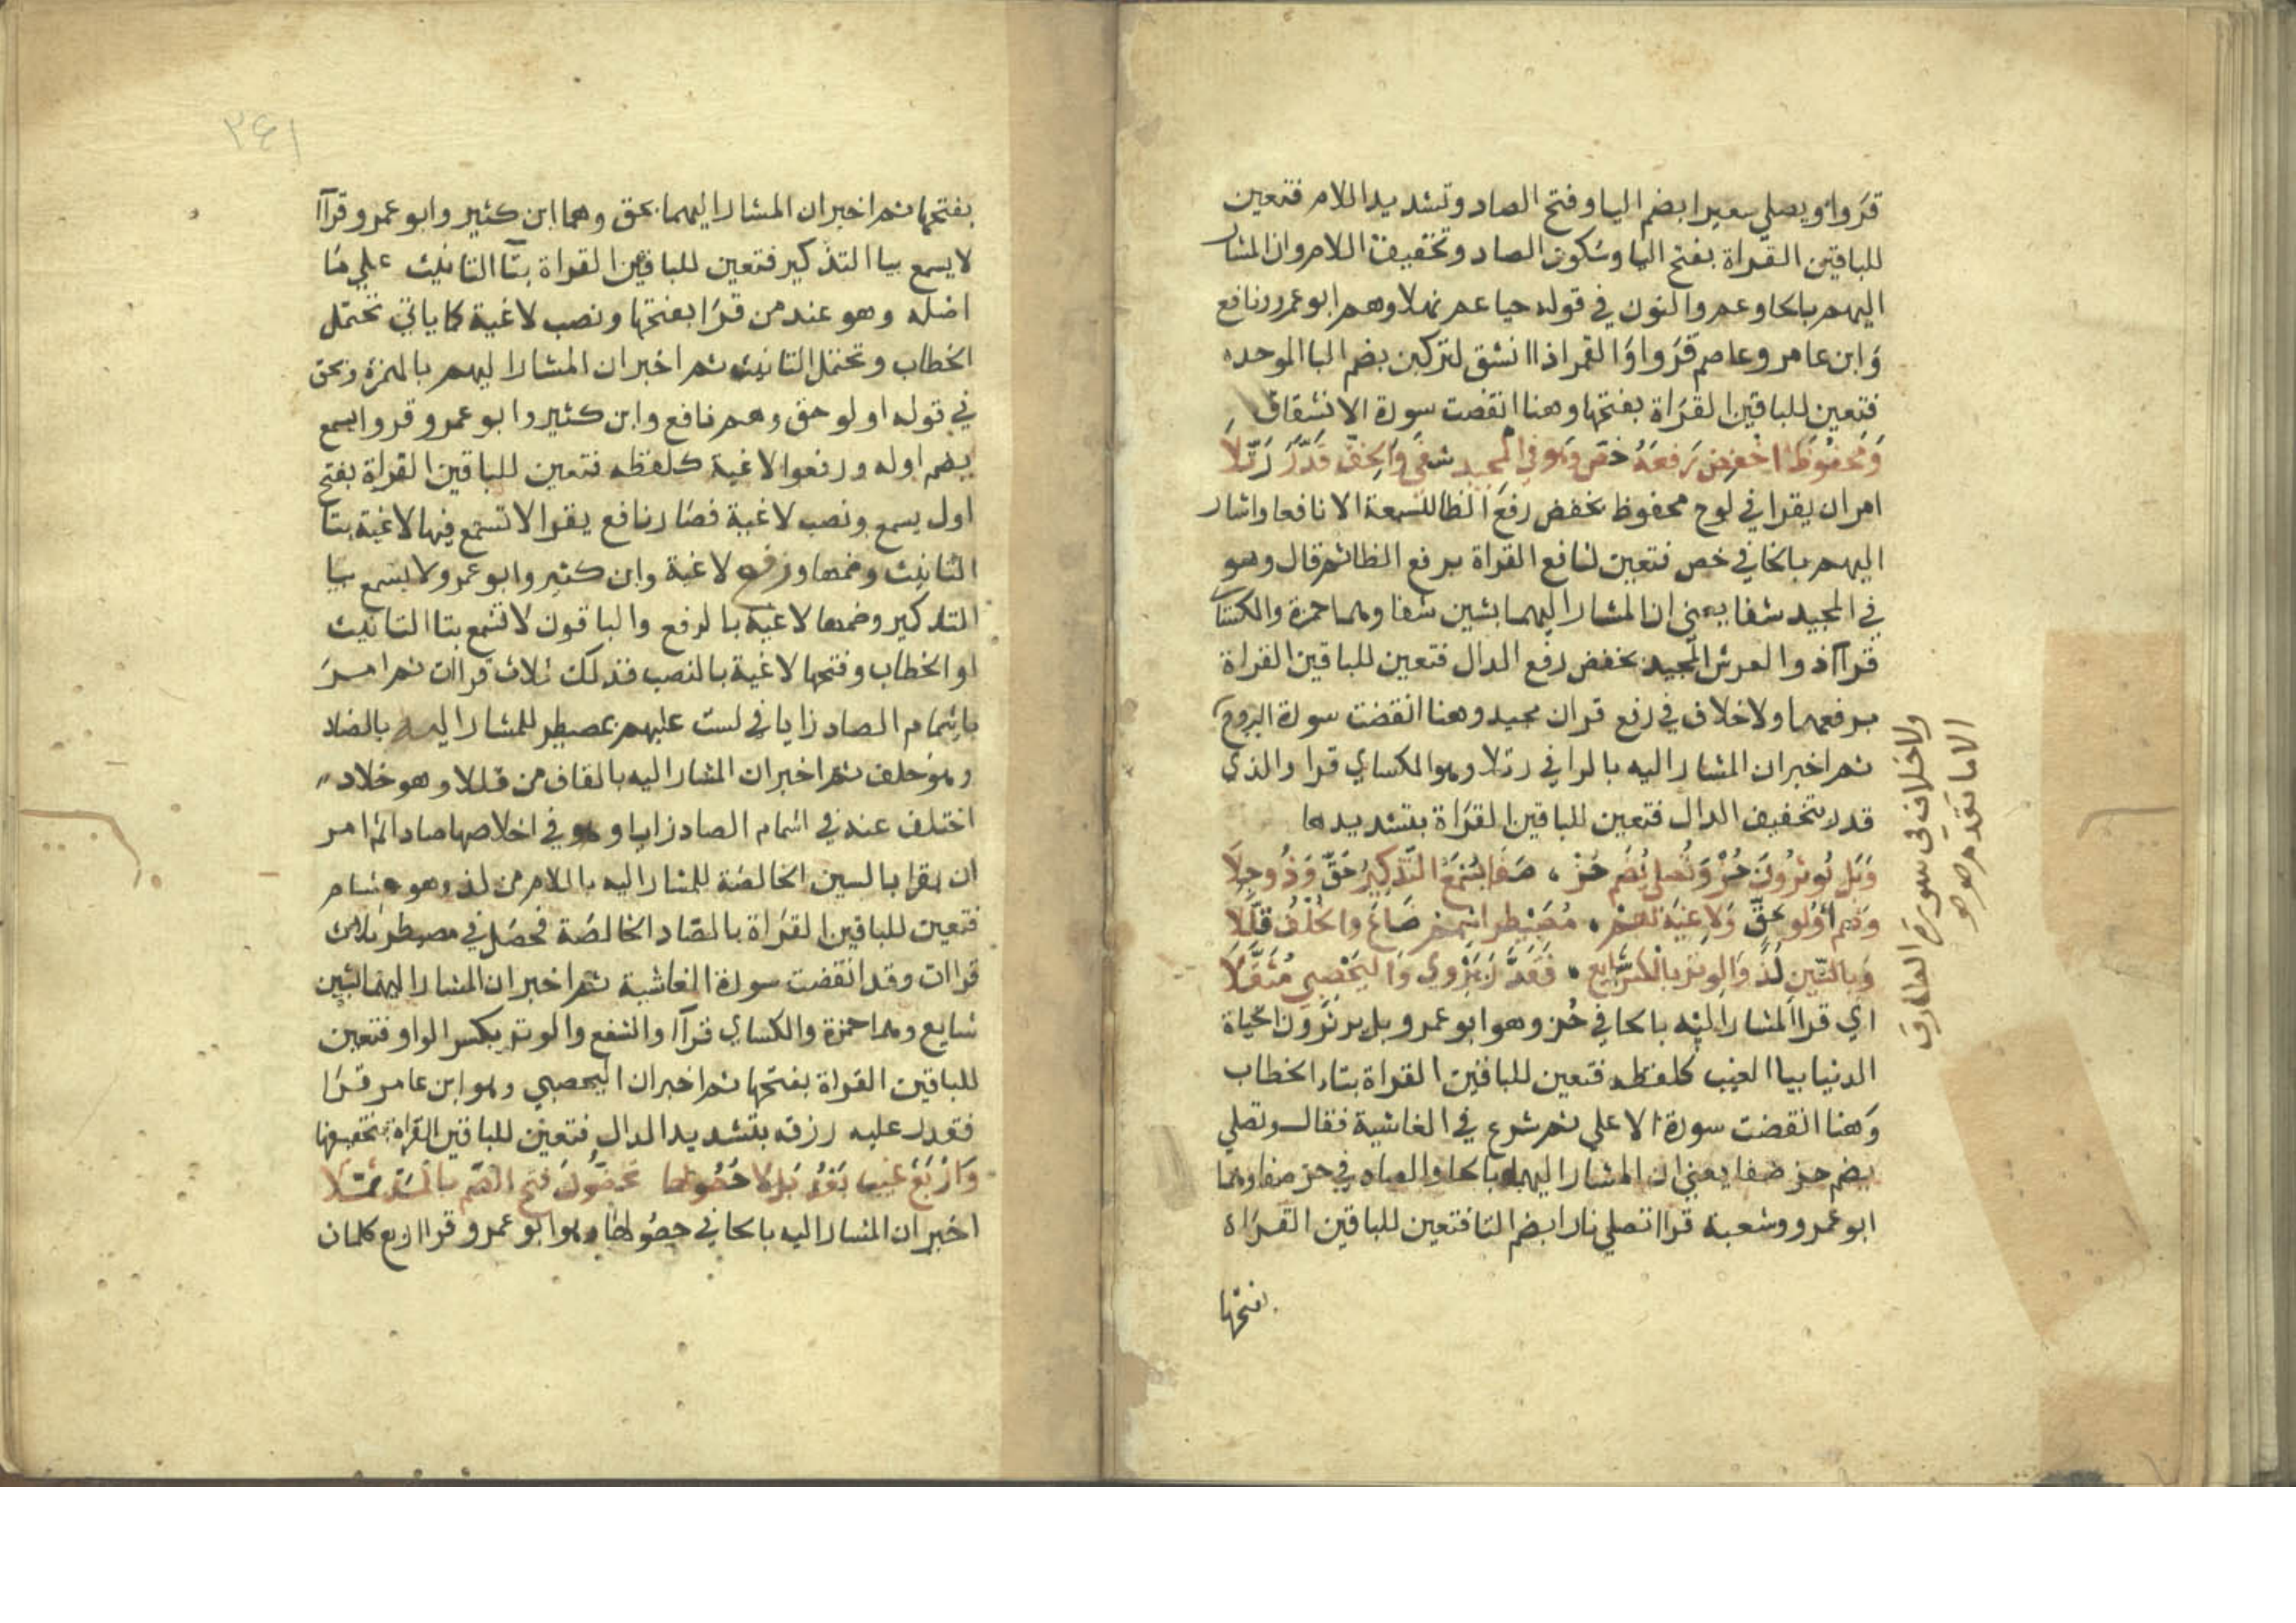 قروا ويصلي سعيرا بضم اليا وفتح الصاد وتشديد اللام فتعين
للباقين القراة بفتح اليا وسكون الصاد وتخفيف اللام وان المشار
اليهم بالحا وعم والنون في قوله حيا عم نهلا وهم ابو عمرو ونافع
وابن عامر وعاصم قروا والقمر اذا انشق لتركبن بضم البا الموحده
فتعين للباقين القراة بفتحها وهنا انقضت سورة الانشقاق
ومحفوظ اخفض رفعه خص وهو في المجيد شفى والخف قدر رتلا
امر ان يقرا في لوح محفوظ بخفض رفع الظا للسبعة الا نافعا واشار
اليهم بالخا في خص فتعين لنافع القراة برفع الظا ثم قال وهو
في المجيد شفا يعني ان المشار اليهما بشين شفا وهما حمزة والكسا
قراآ ذو العرش المجيد بخفض رفع الدال فتعين للباقين القراة
برفعهما ولا خلاف في رفع قران مجيد وهنا انقضت سورة البروج
ثم اخبر ان المشار اليه بالرا في رتلا وهو الكساي قرا والذي
قدر بتخفيف الدال فتعين للباقين القراة بتشديدها
وبل يوثرون حز وتصلى يضم حز ، صفا يسمع التذكير حق وذو جلا
وضم اولو حق ولاغية لهم ، مصيطر اشمم ضاع والخلف قللا
وبالسين لذ والوتر بالكسر شايع ، فقدر يروي اليحصبي مثقلا
اي قرا المشار اليه بالحا في حز وهو ابو عمرو بل يوثرون الحياة
الدنيا بيا الغيب كلفظه فتعين للباقين القراة بتاء الخطاب
وهنا انقضت سورة الاعلى ثم شرع في الغاشية فقال وتصلي
يضم حز صفا يعني ان المشار اليهما بالحا والصاد في حز صفا وهما
ابو عمرو وشعبة قراا تصلي نارا بضم التا فتعين للباقين القراة
بفتحها
ولا خلاف في سورة الطارق
الا ما تقدم
٢٤١
بفتحها ثم اخبر ان المشار اليهما بحق وهما ابن كثير وابو عمرو قراآ
لا يسمع بيا التذكير فتعين للباقين القراة بتا التانيث علي ما
اصله وهو عند من قرا بفتحها ونصب لاغية كما ياتي تحتمل
الخطاب وتحتمل التانيث ثم اخبر ان المشار اليهم بالهمزة وبحق
في قوله اولو حق وهم نافع وابن كثير وابو عمرو قروا يسمع
بضم اوله ورفعوا لاغية كلفظه فتعين للباقين القراة بفتح
اول يسمع ونصب لاغية فصار نافع يقرا لا تسمع فيها لاغية بتا
التانيث وضمها ورفع لاغية وابن كثير وابو عمرو لا يسمع بيا
التذكير وضمها لاغية بالرفع والباقون لا تسمع بتا التانيث
او الخطاب وفتحها لاغية بالنصب فذلك ثلاث قراات ثم امر
باشمام الصاد زايا في لست عليهم بمصيطر للمشار اليه بالضاد
وهو خلف ثم اخبر ان المشار اليه بالقاف من قللا وهو خلاد
اختلف عنه في اشمام الصاد زايا وهو في اخلاصها صادا ثم امر
ان يقرا بالسين الخالصة للمشار اليه باللام من لذ وهو هشام
فتعين للباقين القراة بالصاد الخالصة فحصل في مصيطر ثلاث
قراات وقد انقضت سورة الغاشية ثم اخبر ان المشار اليهما بشين
شايع وهما حمزة والكساي قراآ والشفع والوتر بكسر الواو فتعين
للباقين القراة بفتحها ثم اخبر ان اليحصبي وهو ابن عامر قرا
فقدر عليه رزقه بتشديد الدال فتعين للباقين القراة بتخفيفها
واربع غيب بعد بل لا حصولها تحضون فتح الضم بالمد ثملا
اخبر ان المشار اليه بالحا في حصولها وهو ابو عمرو قرا اربع كلمات